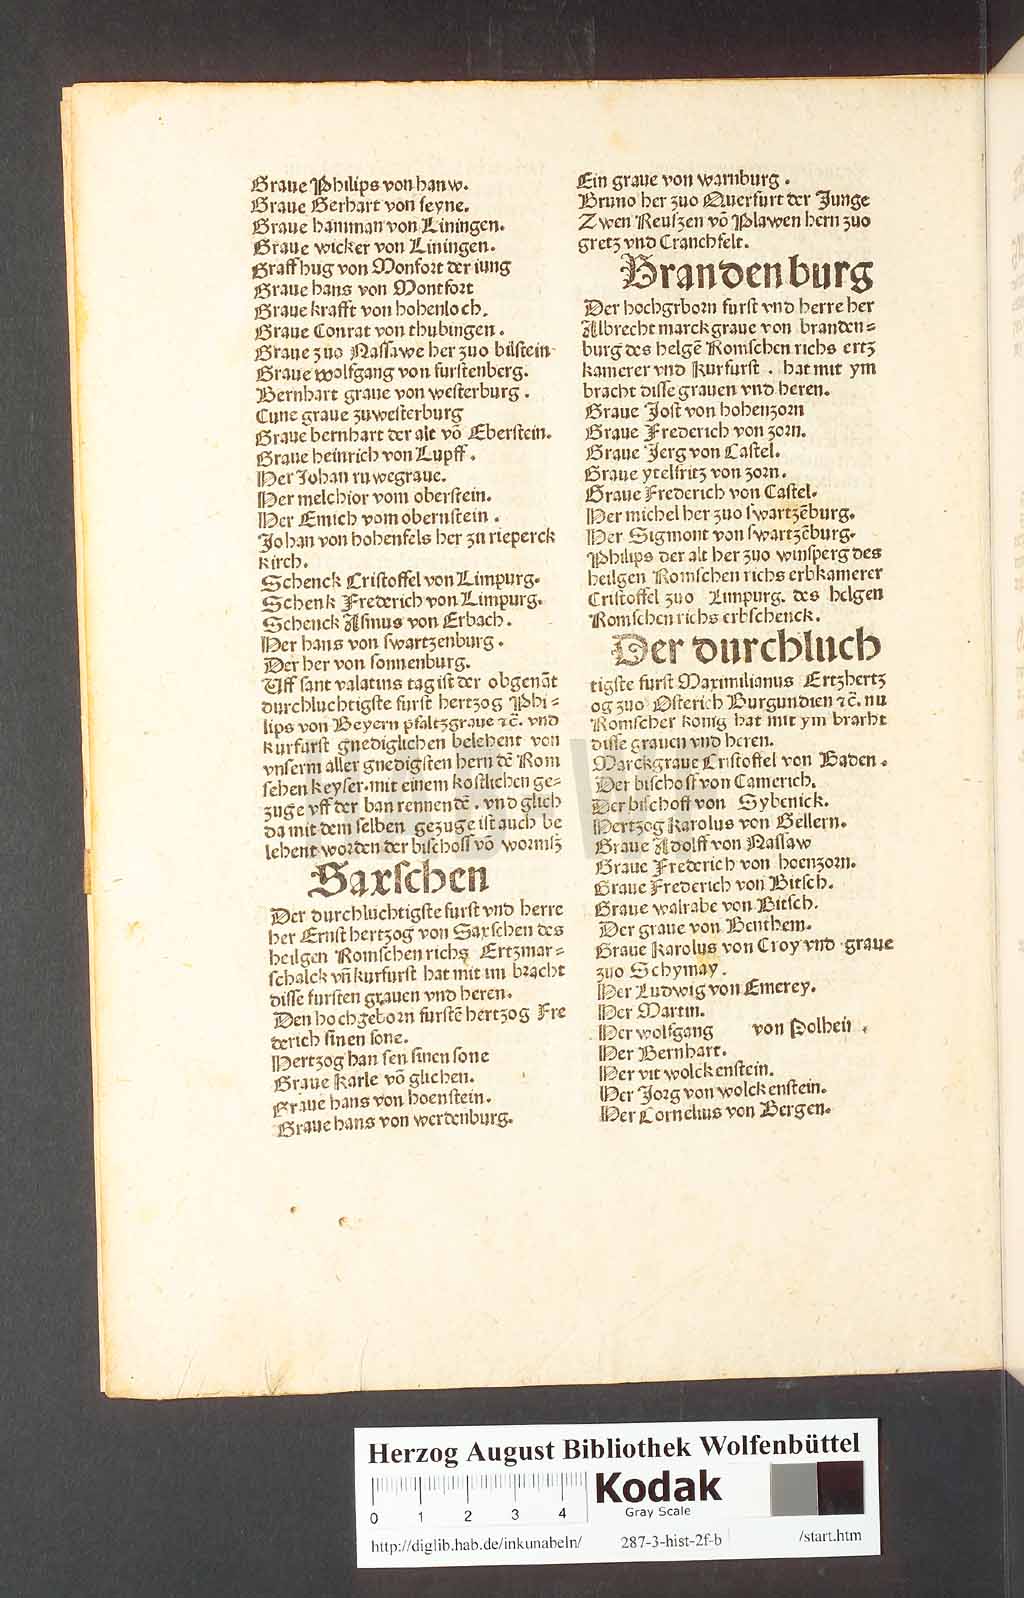 Graue Philips von hanw.
Graue Gerhart von seyne.
Graue hamman von Liningen.
Graue wicker von Liningen.
Graff hug von Monfort der iung
Graue hans von Montfort
Graue krafft von hohenloch.
Graue Conrat von thubingen.
Graue zuo Nassawe her zuo bilstein
Graue wolfgang von furstenberg.
Bernhart graue von westerburg.
Cune graue zuwesterburg
Graue bernhart der alt vō Eberstein.
Graue heinrich von Lupff.
Her Johan ruwegraue.
Her melchior vom oberstein.
Her Emich vom obernstein.
Johan von hohenfels her zu rieperck
kirch.
Schenck Cristoffel von Limpurg.
Schenk Frederich von Limpurg.
Schenck Asmus von Erbach.
Her hans von swartzenburg.
Der her von sonnenburg.
Uff sant valatins tag ist der obgenāt
durchluchtigste furst hertzog Phi=
lips von Beyern pfaltzgraue ⁊c̄. vnd
kurfurst gnediglichen belehent von
vnserm aller gnedigsten hern dē Rom
schen keyser. mit einem kostlichen ge=
zuge vff der ban rennendē. vnd glich
da mit dem selben gezuge ist auch be
lehent worden der bischoff vō wormsz
Saxschen
Der durchluchtigste furst vnd herre
her Ernst hertzog von Saxschen des
heilgen Romschen richs Ertzmar=
schalck vn̄ kurfurst hat mit im bracht
disse fursten grauen vnd heren.
Den hochgeborn furstē hertzog Fre
derich sinen sone.
Hertzog hansen sinen sone
Graue Karle vō glichen.
Graue hans von hoenstein.
Graue hans von werdenburg.
Ein graue von warnburg.
Bruno her zuo Querfurt der Junge
Zwen Reuszen vō Plawen hern zuo
gretz vnd Cranchfelt.
Brandenburg
Der hochgrborn furst vnd herre her
Albrecht marckgraue von branden=
burg des helgē Romschen richs ertz
kamerer vnd Kurfurst. hat mit ym
bracht disse grauen vnd heren.
Graue Jost von hohenzorn
Graue Frederich von zorn.
Graue Jerg von Castel.
Graue ytelfritz von zorn.
Graue Frederich von Castel.
Her michel her zuo swartzēburg.
Her Sigmont von swartzēburg.
Philips der alt her zuo winsperg des
heilgen Romschen richs erbkamerer
Cristoffel zuo Limpurg. des helgen
Romschen richs erbschenck.
Der durchluch
tigste furst Maximilianus Ertzhertz
og zuo Osterich Burgundien ⁊c̄. nu
Romscher konig hat mit ym bracht
disse grauen vnd heren.
Marckgraue Cristoffel von Baden.
Der bischoff von Camerich.
Der bischoff von Sybenick.
Hertzog Karolus von Gellern.
Graue Adolff von Nassaw
Graue Frederich von hoenzorn.
Graue Frederich von Bitsch.
Graue walrabe von Bitsch.
Der graue von Benthem.
Graue Karolus von Croy vnd graue
zuo Schymay.
Her Ludwig von Emerey.
Her Martin.
Her wolfgang von Polhein.
Her Bernhart.
Her vit wolckenstein.
Her Jorg von wolckenstein.
Her Cornelius von Bergen.
HAB WF
Herzog August Bibliothek Wolfenbüttel
0 1 2 3 4
Kodak
Gray Scale
http://diglib.hab.de/inkunabeln/ 287-3-hist-2f-b /start.htm